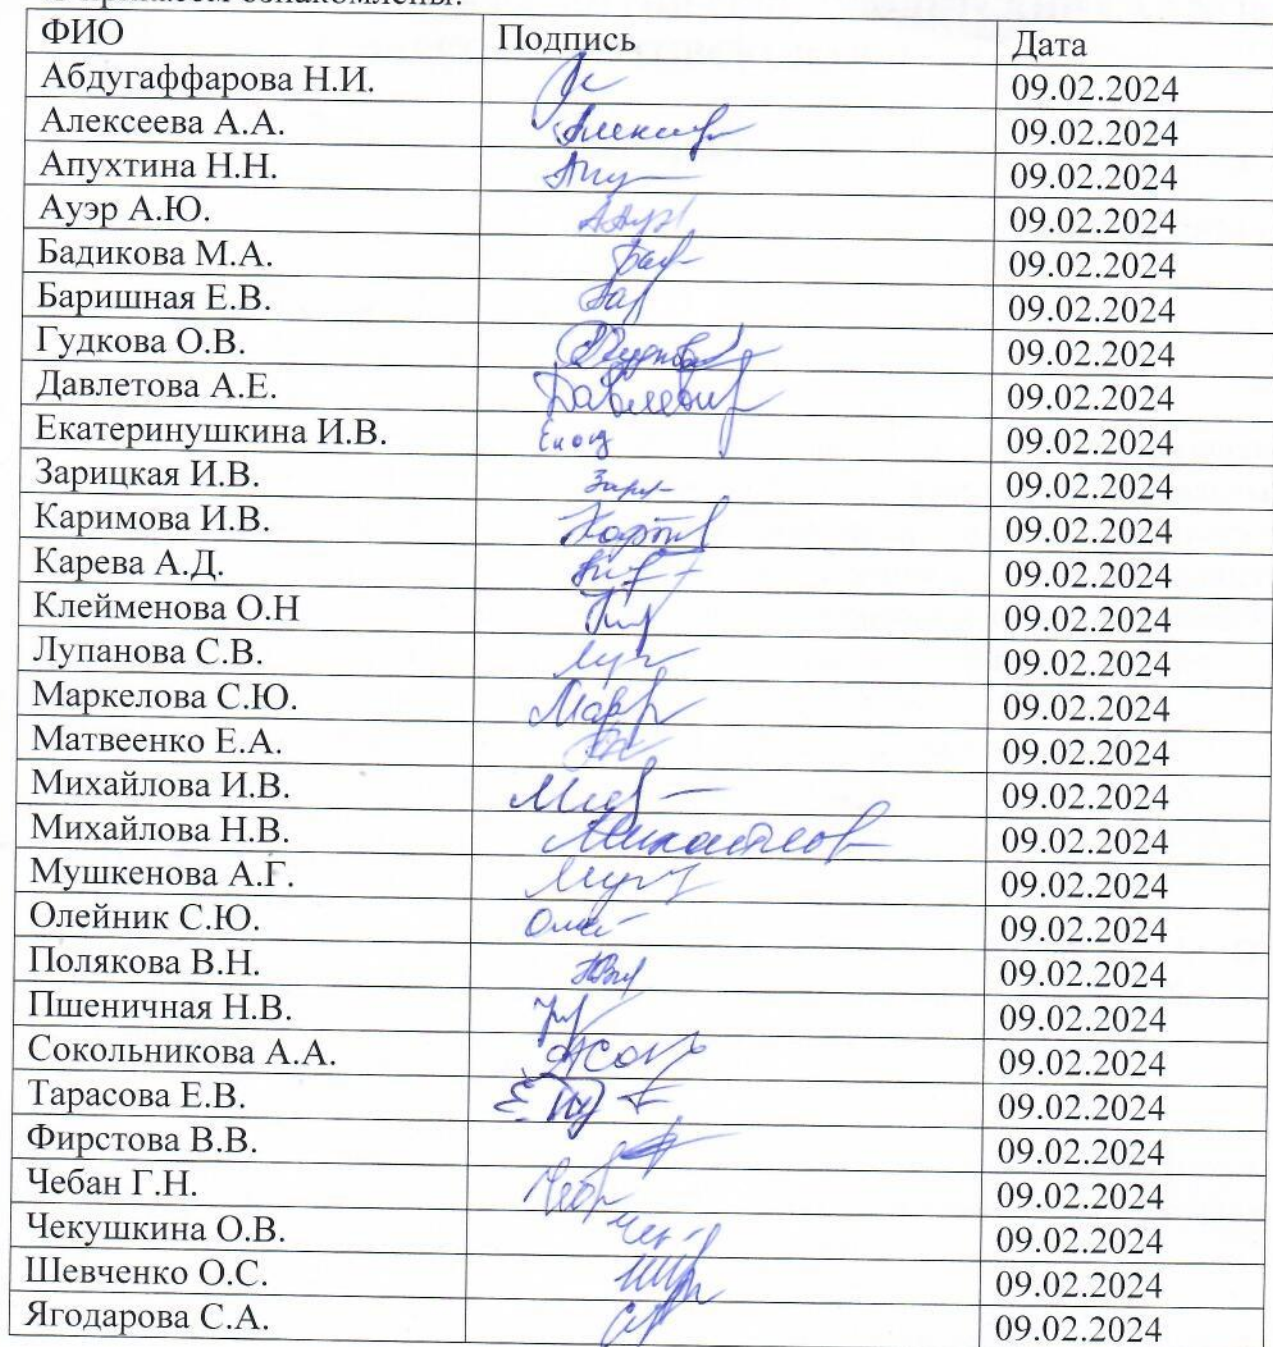 ФИО Подпись Дата
Абдугаффарова Н.И. 09.02.2024
Алексеева А.А. 09.02.2024
Апухтина Н.Н. 09.02.2024
Ауэр А.Ю. 09.02.2024
Бадикова М.А. 09.02.2024
Баришная Е.В. 09.02.2024
Гудкова О.В. 09.02.2024
Давлетова А.Е. 09.02.2024
Екатеринушкина И.В. 09.02.2024
Зарицкая И.В. 09.02.2024
Каримова И.В. 09.02.2024
Карева А.Д. 09.02.2024
Клейменова О.Н 09.02.2024
Лупанова С.В. 09.02.2024
Маркелова С.Ю. 09.02.2024
Матвеенко Е.А. 09.02.2024
Михайлова И.В. 09.02.2024
Михайлова Н.В. 09.02.2024
Мушкенова А.Г. 09.02.2024
Олейник С.Ю. 09.02.2024
Полякова В.Н. 09.02.2024
Пшеничная Н.В. 09.02.2024
Сокольникова А.А. 09.02.2024
Тарасова Е.В. 09.02.2024
Фирстова В.В. 09.02.2024
Чебан Г.Н. 09.02.2024
Чекушкина О.В. 09.02.2024
Шевченко О.С. 09.02.2024
Ягодарова С.А. 09.02.2024